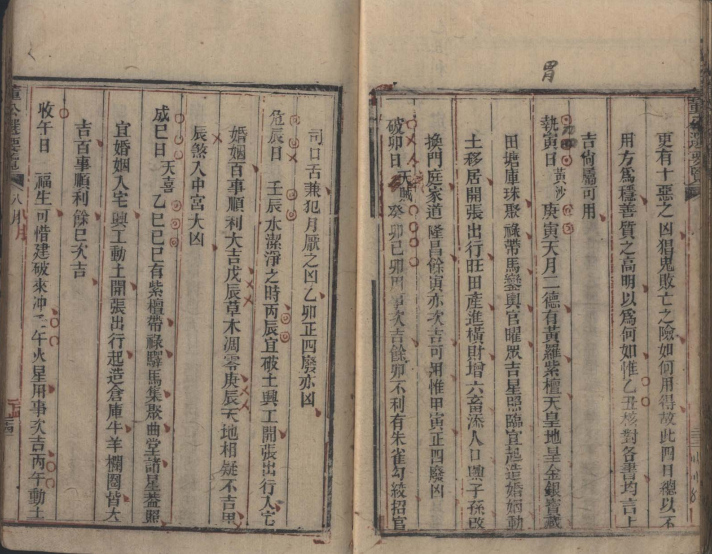 更有十惡之凶猖鬼敗亡之險如何用得故此四日總以不
用方爲穩善質之高明以爲何如惟乙丑核對各書均言上
吉尙屬可用
執寅日 黃沙 庚寅天月二德有黃羅紫檀天皇地皇金銀寶藏
田塘庫珠聚祿帶馬鑾輿官曜眾吉星照臨宜起造婚姻動
土移居開張出行旺田產進橫財增六畜添人口興子孫改
換門庭家道隆昌餘寅亦次吉可用惟甲寅正四廢凶
破卯日 天賊 癸卯己卯用事次吉餘卯不利有朱雀勾絞招官
司口舌兼犯月厭之凶乙卯正四廢亦凶
危辰日 壬辰水潔淨之時丙辰宜破土興工開張出行人宅
婚姻百事順利大吉戊辰草木凋零庚辰天地相疑不吉甲
辰煞入中宮大凶
成巳日 天喜 乙巳巳有紫檀帶祿驛馬集聚曲堂諸星蓋照
宜婚姻入宅興工動土開張出行起造倉庫牛羊欄圈皆大
吉百事順利餘巳次吉
收午日 福生可惜建破來冲 午火星用事次吉丙午動土
董公選要覽 八月
胃